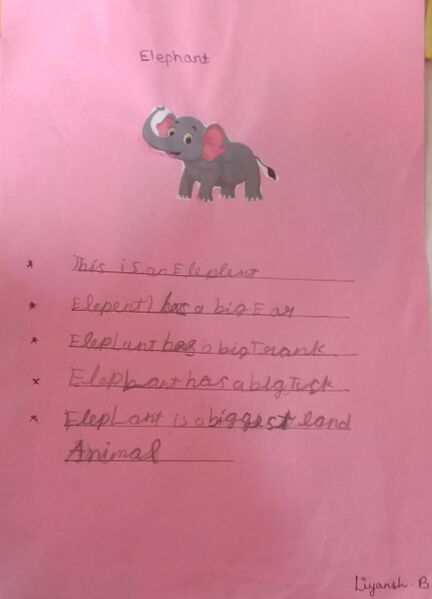 Elephant
* This is an Eleplent
* Elepent has a big Ear
* Eleplant has a big Trank
* Elephant has a big Tusk
* Eleplant is a biggest land
Animal
Liyansh - B